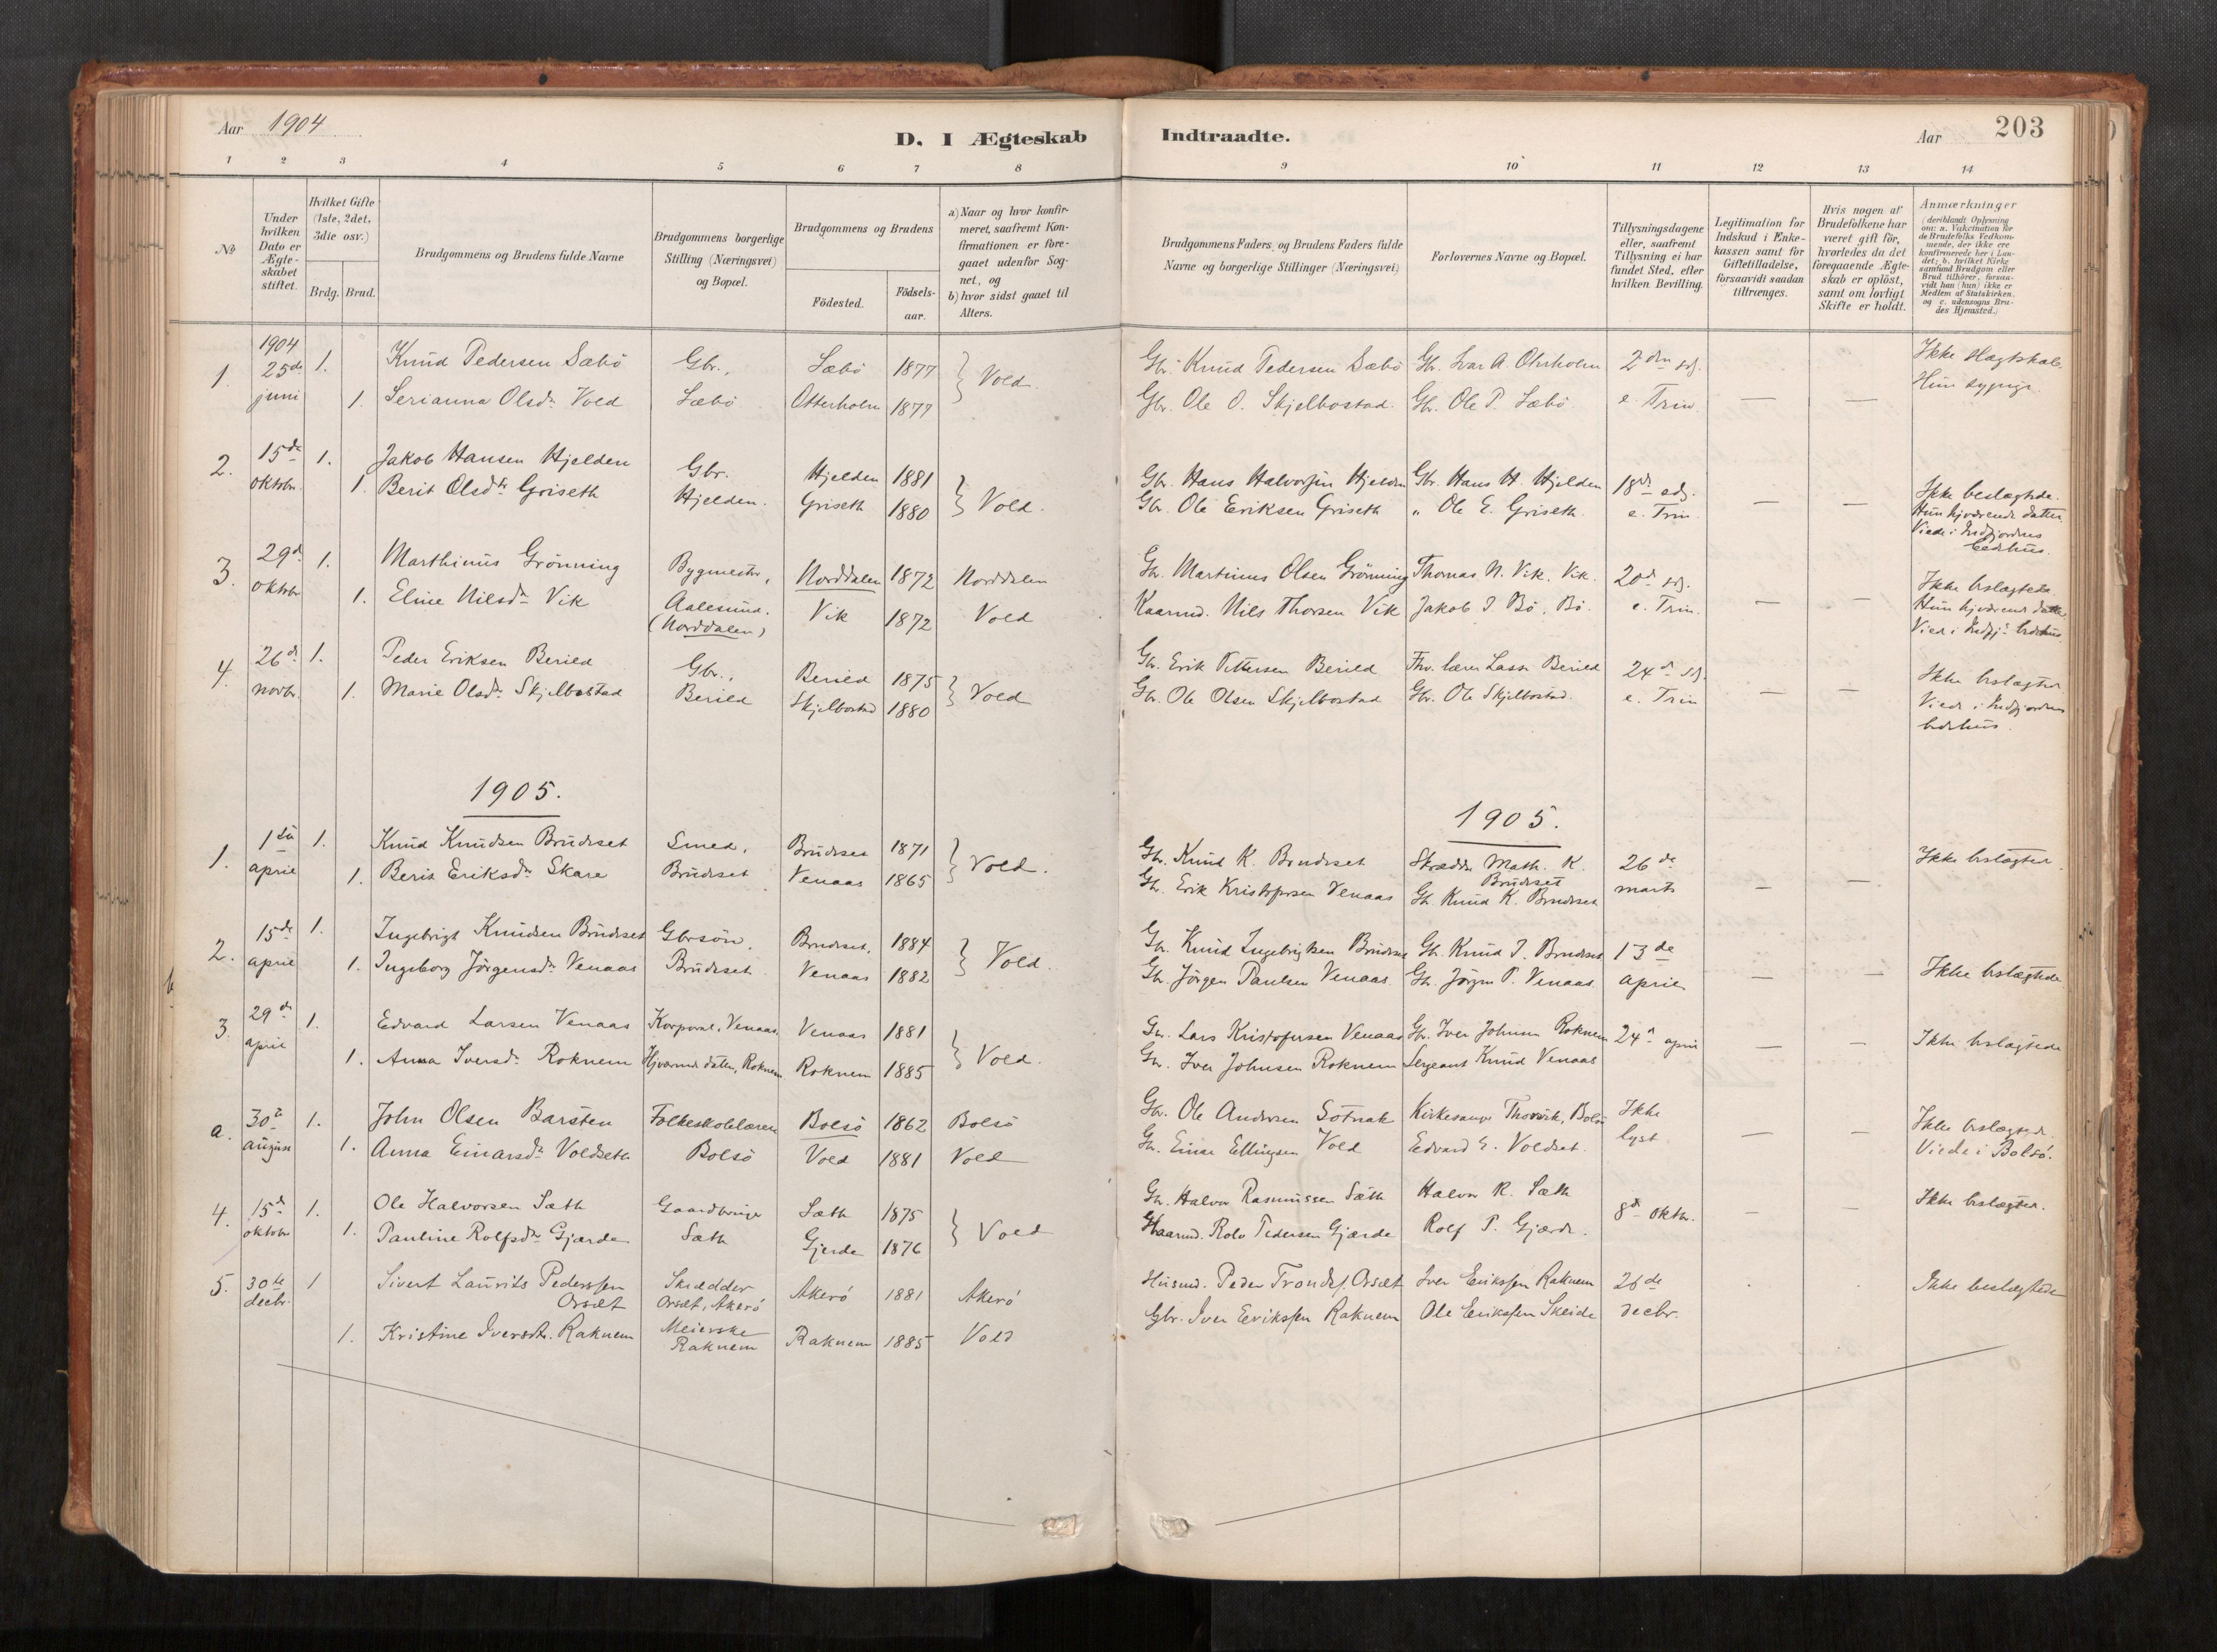 Aar 1904
D. I Ægteskab Indtraadte.
Aar
203
1 2 3 4 5 6 7 8 9 10 11 12 13 14
No
Under hvilken Dato er Ægteskabet stiftet.
Hvilket Gifte (1ste, 2det, 3die osv.)
Brdg. Brud.
Brudgommens og Brudens fulde Navne
Brudgommens borgerlige Stilling (Næringsvei) og Bopæl.
Brudgommens og Brudens
Födested.
Födsels-aar.
a) Naar og hvor konfirmeret, saafremt Konfirmationen er foregaaet udenfor Sognet, og
b) hvor sidst gaaet til Alters.
Brudgommens Faders og Brudens Faders fulde Navne og borgerlige Stillinger (Næringsvei)
Forlovernes Navne og Bopæl.
Tillysningsdagene eller, saafremt Tillysning ei har fundet Sted, efter hvilken Bevilling.
Legitimation for Indskud i Enkekassen samt for Giftetilladelse, forsaavidt saadan tiltrænges.
Hvis nogen af Brudefolkene har været gift för, hvorledes da det foregaaende Ægteskab er oplöst, samt om lovligt Skifte er holdt.
Anmærkninger
(deriblandt Oplysning om: a. Vakcination for de Brudefolks Vedkommende, der ikke ere konfirmerede her i Landet; b. hvilket Kirkesamfund Brudgom eller Brud tilhörer, forsaavidt han (hun) ikke er Medlem af Statskirken, og c. udensogns Brudes Hjemsted.)
1904
1. 25de 1. Knud Pedersen Sæbö Gbr., Sæbö 1877 } Vold. Gbr. Knud Pedersen Sæbö Gbr. Ivar A 2den sdg.
juni 1. Serianna Olsdr. Vold Sæbö Otterholm 1877 Gbr. Ole O. Skjelbostad. Gbr. Ole P. Sæbö. e. Trin. — —
2. 15de 1. Jakob Hansen Hjelden Gbr. Hjelden 1881 } Vold. Gbr. Hans Halvorsen Hjelden Gbr. Hans H. Hjelden 18de sdg. Ikke beslægtede.
oktobr. 1. Berit Olsdtr Griseth Hjelden. Griseth 1880 Gbr. Ole Eriksen Griseth " Ole E. Griseth. e. Trin. — — Hun hjværende datter.
Viede i Indfjordens bedehus.
3. 29de 1. Marthinus Grönning Bygmester, Norddalen 1872 Norddalen Gbr. Martinus Olsen Grönning Thomas N. Vik, Vik. 20de sdg. Ikke beslægtede.
oktobr 1. Eline Nilsdr. Vik Aalesund. Vik 1872 Vold Kaarmd. Nils Thorsen Vik Jakob J Bö, Bö. e. Trin. — — Hun hjværende datter.
(Norddalen) Viede i Indfj. bedehus
4. 26de 1. Peder Eriksen Berild Gbr., Berild 1875 } Vold Gbr. Erik Pettersen Berild Fhv. lærer Lasse Berild 24de sdg. Ikke beslægtede.
novbr. 1. Marie Olsdr. Skjelbostad Berild Skjelbostad 1880 Gbr. Ole Olsen Skjelbostad Gbr. Ole Skjelbostad. e. Trin — — Viede i Indfjordens
bedehus.
1905. 1905.
1. 1ste 1. Knud Knudsen Brüdeset Smed, Brüdeset 1871 } Vold. Gbr. Knud K. Brudeset Skrædder Math. K. Brüdeset 26de Ikke beslægtede.
april 1. Berit Eriksdr. Skare Brüdeset Venaas 1865 Gbr. Erik Kristofersen Venaas Gbr. Knud K. Brudeset marts — —
2. 15de 1. Ingebrigt Knudsen Brüdeset Gbrsön, Brudeset. 1884 } Vold. Gbr. Knud Ingebrigtsen Brüdeset Gbr. Knud I. Brudeset 13de
april 1. Ingeborg Jörgensdr. Venaas Brüdeset Venaas 1882 Gbr. Jörgen Paulsen Venaas. Gbr. Jörgen P. Venaas. april — — Ikke beslægtede
3. 29de 1. Edvard Larsen Venaas Korporal, Venaas. Venaas 1881 } Vold. Gbr. Lars Kristofersen Venaas Gbr. Iver Johnsen Roknem 24de april — — Ikke beslægtede
april 1. Anna Iversdr. Roknem Hjværende datter, Roknem. Roknem 1885 Gbr. Iver Johnsen Roknem Sergeant Knud Venaas
a. 30te 1. John Olsen Barsten Folkeskolelærer Bolsö 1862 Bolsö Gbr. Ole Andersen Sötnak Kirkesanger Thorvik, Bolsö Ikke Ikke beslægtede.
august 1. Anna Einarsdr. Voldseth Bolsö Vold 1881 Vold Gbr. Einar Ellingsen Vold Edvard E. Voldset. lyst. — — Viede i Bolsö.
4. 15de 1. Ole Halvorsen Sæth Gaardbruger Sæth 1875 } Vold Gbr. Halvor Rasmussen Sæth Halvor R. Sæth 8de oktbr. — — Ikke beslægtede.
oktobr 1. Pauline Rolfsdr. Gjærde Sæth Gjerde 1876 Kaarmd. Rolv Pedersen Gjærde Rolf P. Gjærde.
5. 30te 1 Sivert Laurits Pederssen Skrædder Akerö 1881 Akerö Husmd. Peder Trondss. Orsæt Iver Erikssen Raknem 26de Ikke beslægtede
decbr. Orsæt Orsæt, Akerö Gbr. Iver Erikssen Raknem Ole Erikssen Skeide decbr.
1. Kristine Iversdtr. Raknem Meierske Raknem Raknem 1885 Vold